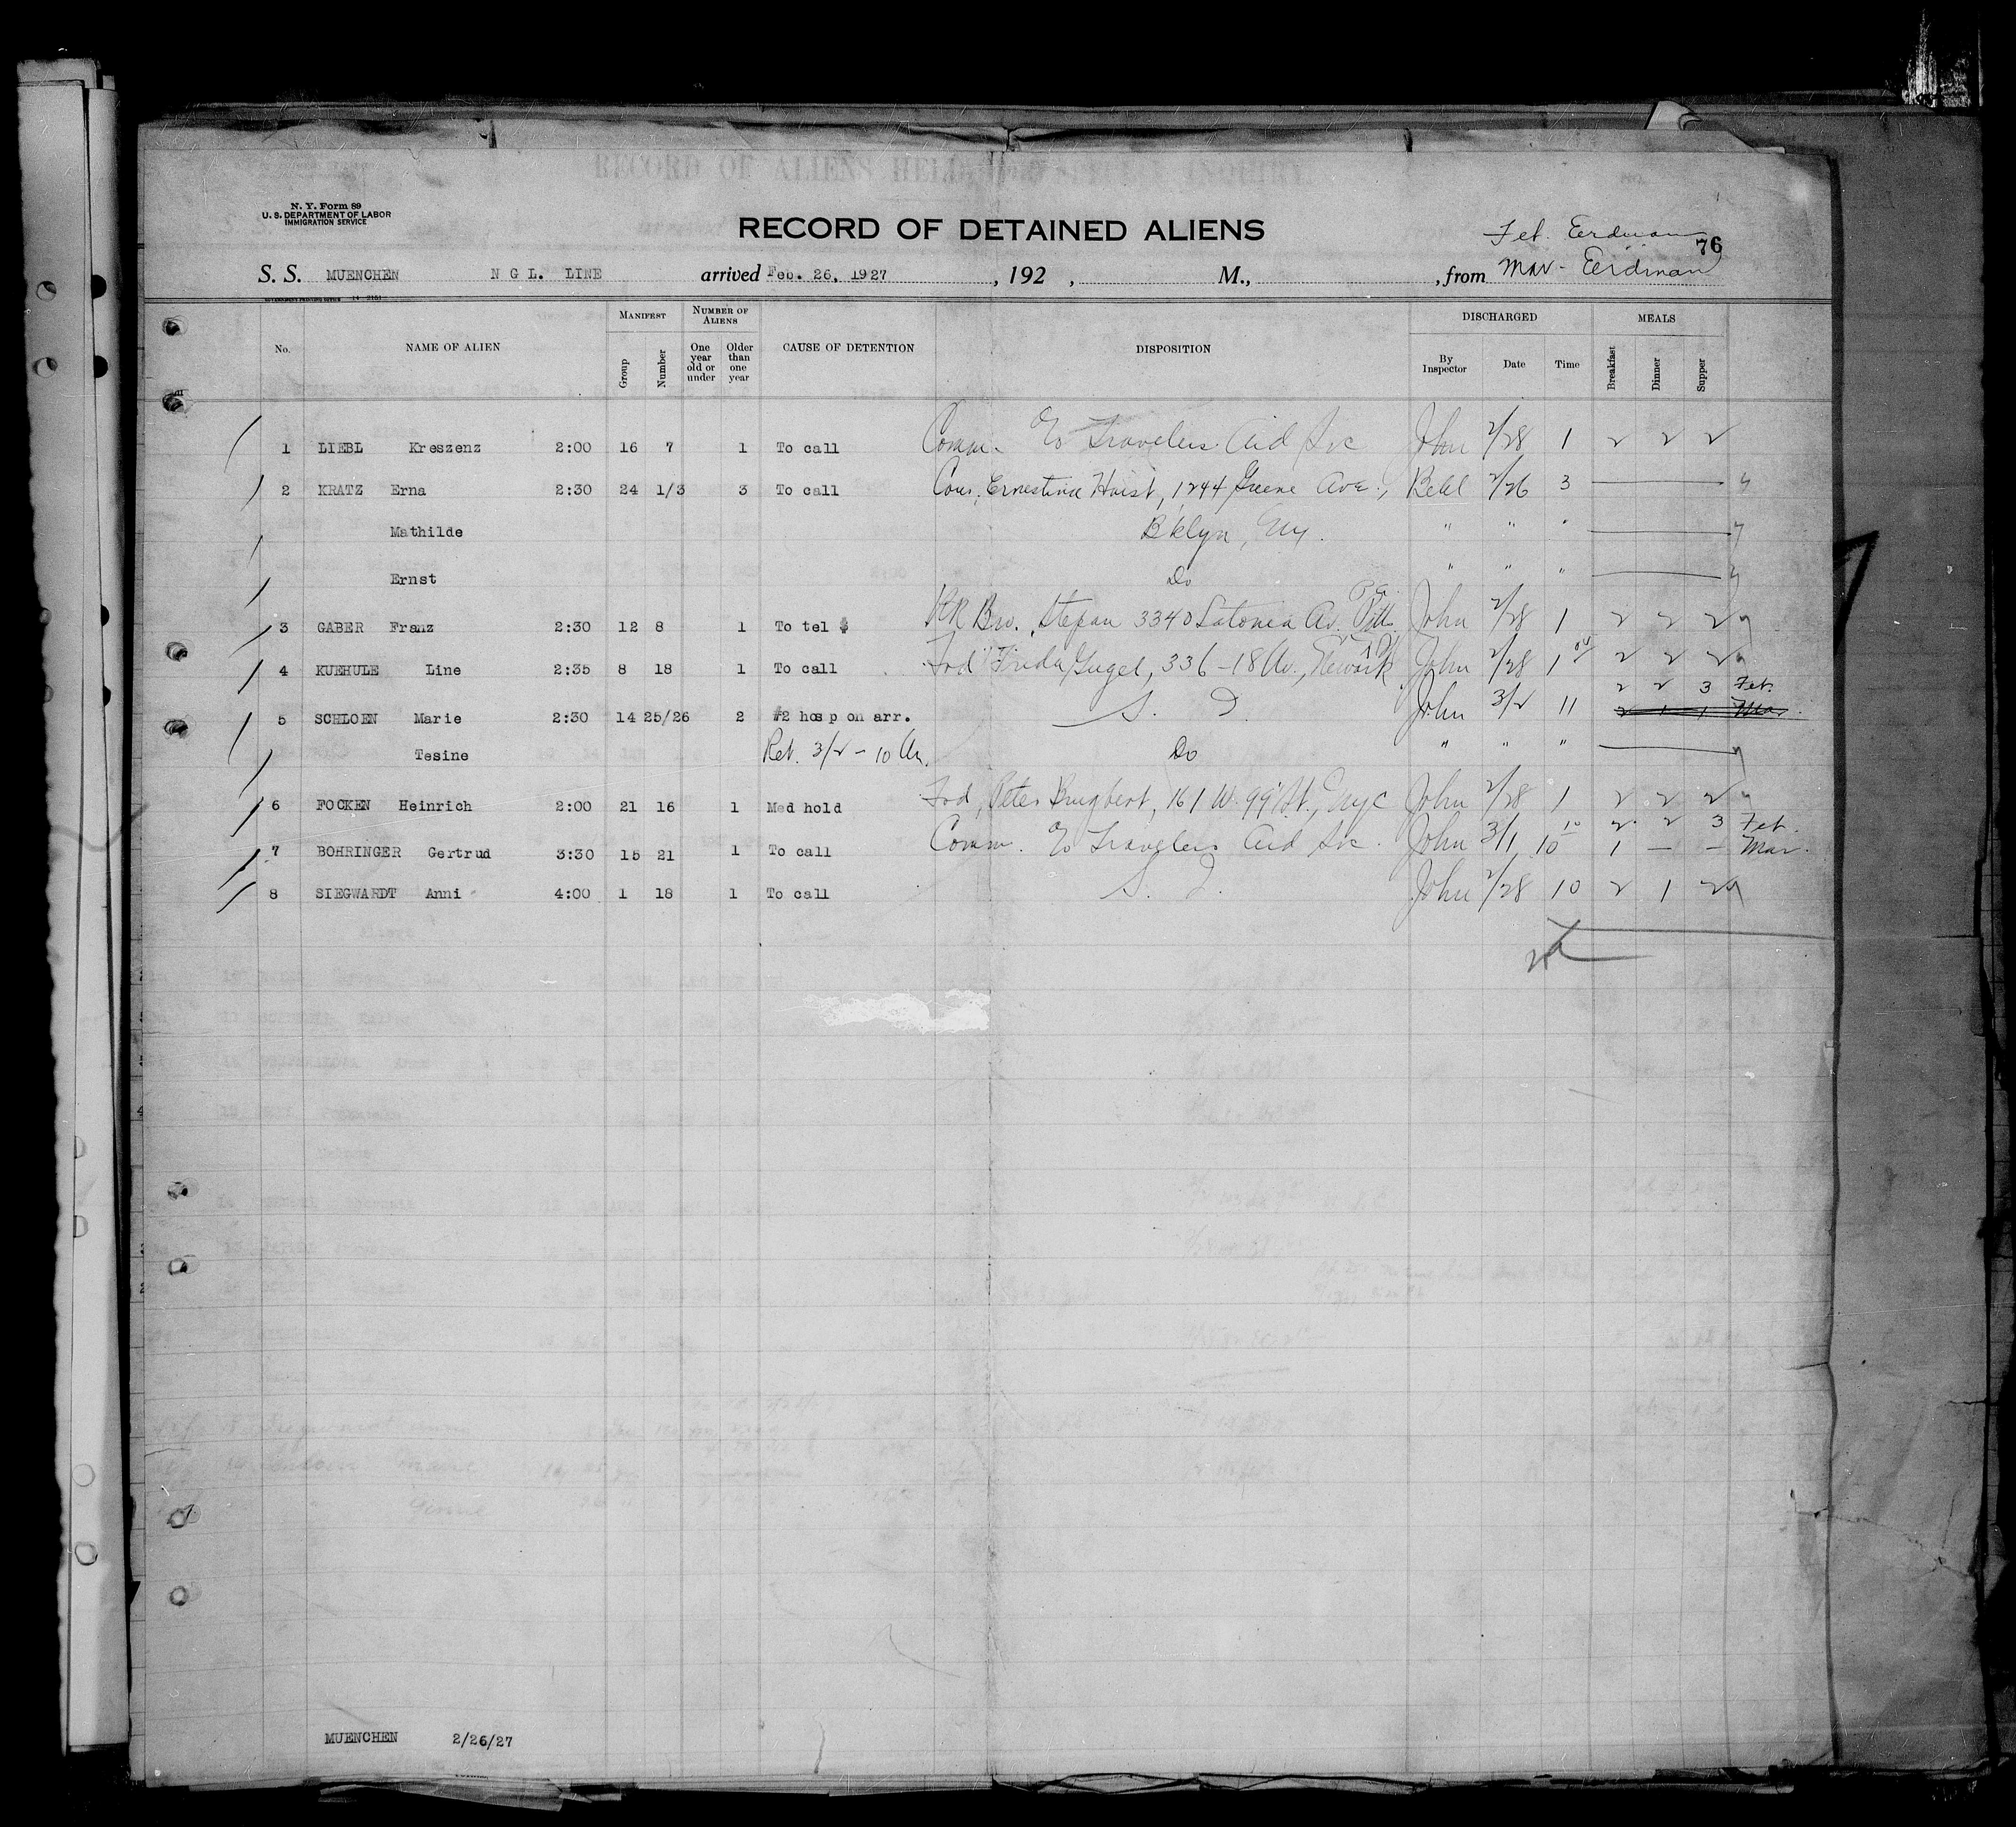 N. Y. Form 89
U. S. DEPARTMENT OF LABOR
IMMIGRATION SERVICE
RECORD OF DETAINED ALIENS
Feb. Eerdman
76
S. S. MUENCHEN N G L. LINE arrived Feb. 26, 1927 , 192 , M., , from Mar - Eerdman
No. NAME OF ALIEN MANIFEST NUMBER OF ALIENS CAUSE OF DETENTION DISPOSITION DISCHARGED MEALS
Group Number One year old or under Older than one year By Inspector Date Time Breakfast Dinner Supper
1 LIEBL Kreszenz 2:00 16 7 1 To call Comm. c/o Travelers Aid Soc John 2/28 1 2 2 2
2 KRATZ Erna 2:30 24 1/3 3 To call Cous, Ernestine Hoist, 1244 Greene Ave., Behl 2/26 3
Mathilde B'klyn, NY. " " "
Ernst Do " " "
3 GABER Franz 2:30 12 8 1 To tel $ RR Bro. Stepan 3340 Latonia Av. Pitts Pa John 2/28 1 2 2 2
4 KUEHULE Line 2:35 8 18 1 To call Frd Frida Gugel, 336-18 Av., Newark NJ John 2/28 1 2 2 2
2 2 3 Feb.
5 SCHLOEN Marie 2:30 14 25/26 2 #2 hosp on arr. S. I. John 3/2 11 2 1 1 Mar.
Tesine Ret. 3/2 - 10 Am. Do " " "
6 FOCKEN Heinrich 2:00 21 16 1 Med hold Frd, Peter 161 W. 99 St., NYC John 2/28 1 2 2 2
2 2 3 Feb.
7 BOHRINGER Gertrud 3:30 15 21 1 To call Comm. c/o Travelers Aid Soc. John 3/1 10 10 1 - - Mar.
8 SIEGWARDT Anni 4:00 1 18 1 To call S. I. John 2/28 10 2 1 2
MUENCHEN 2/26/27